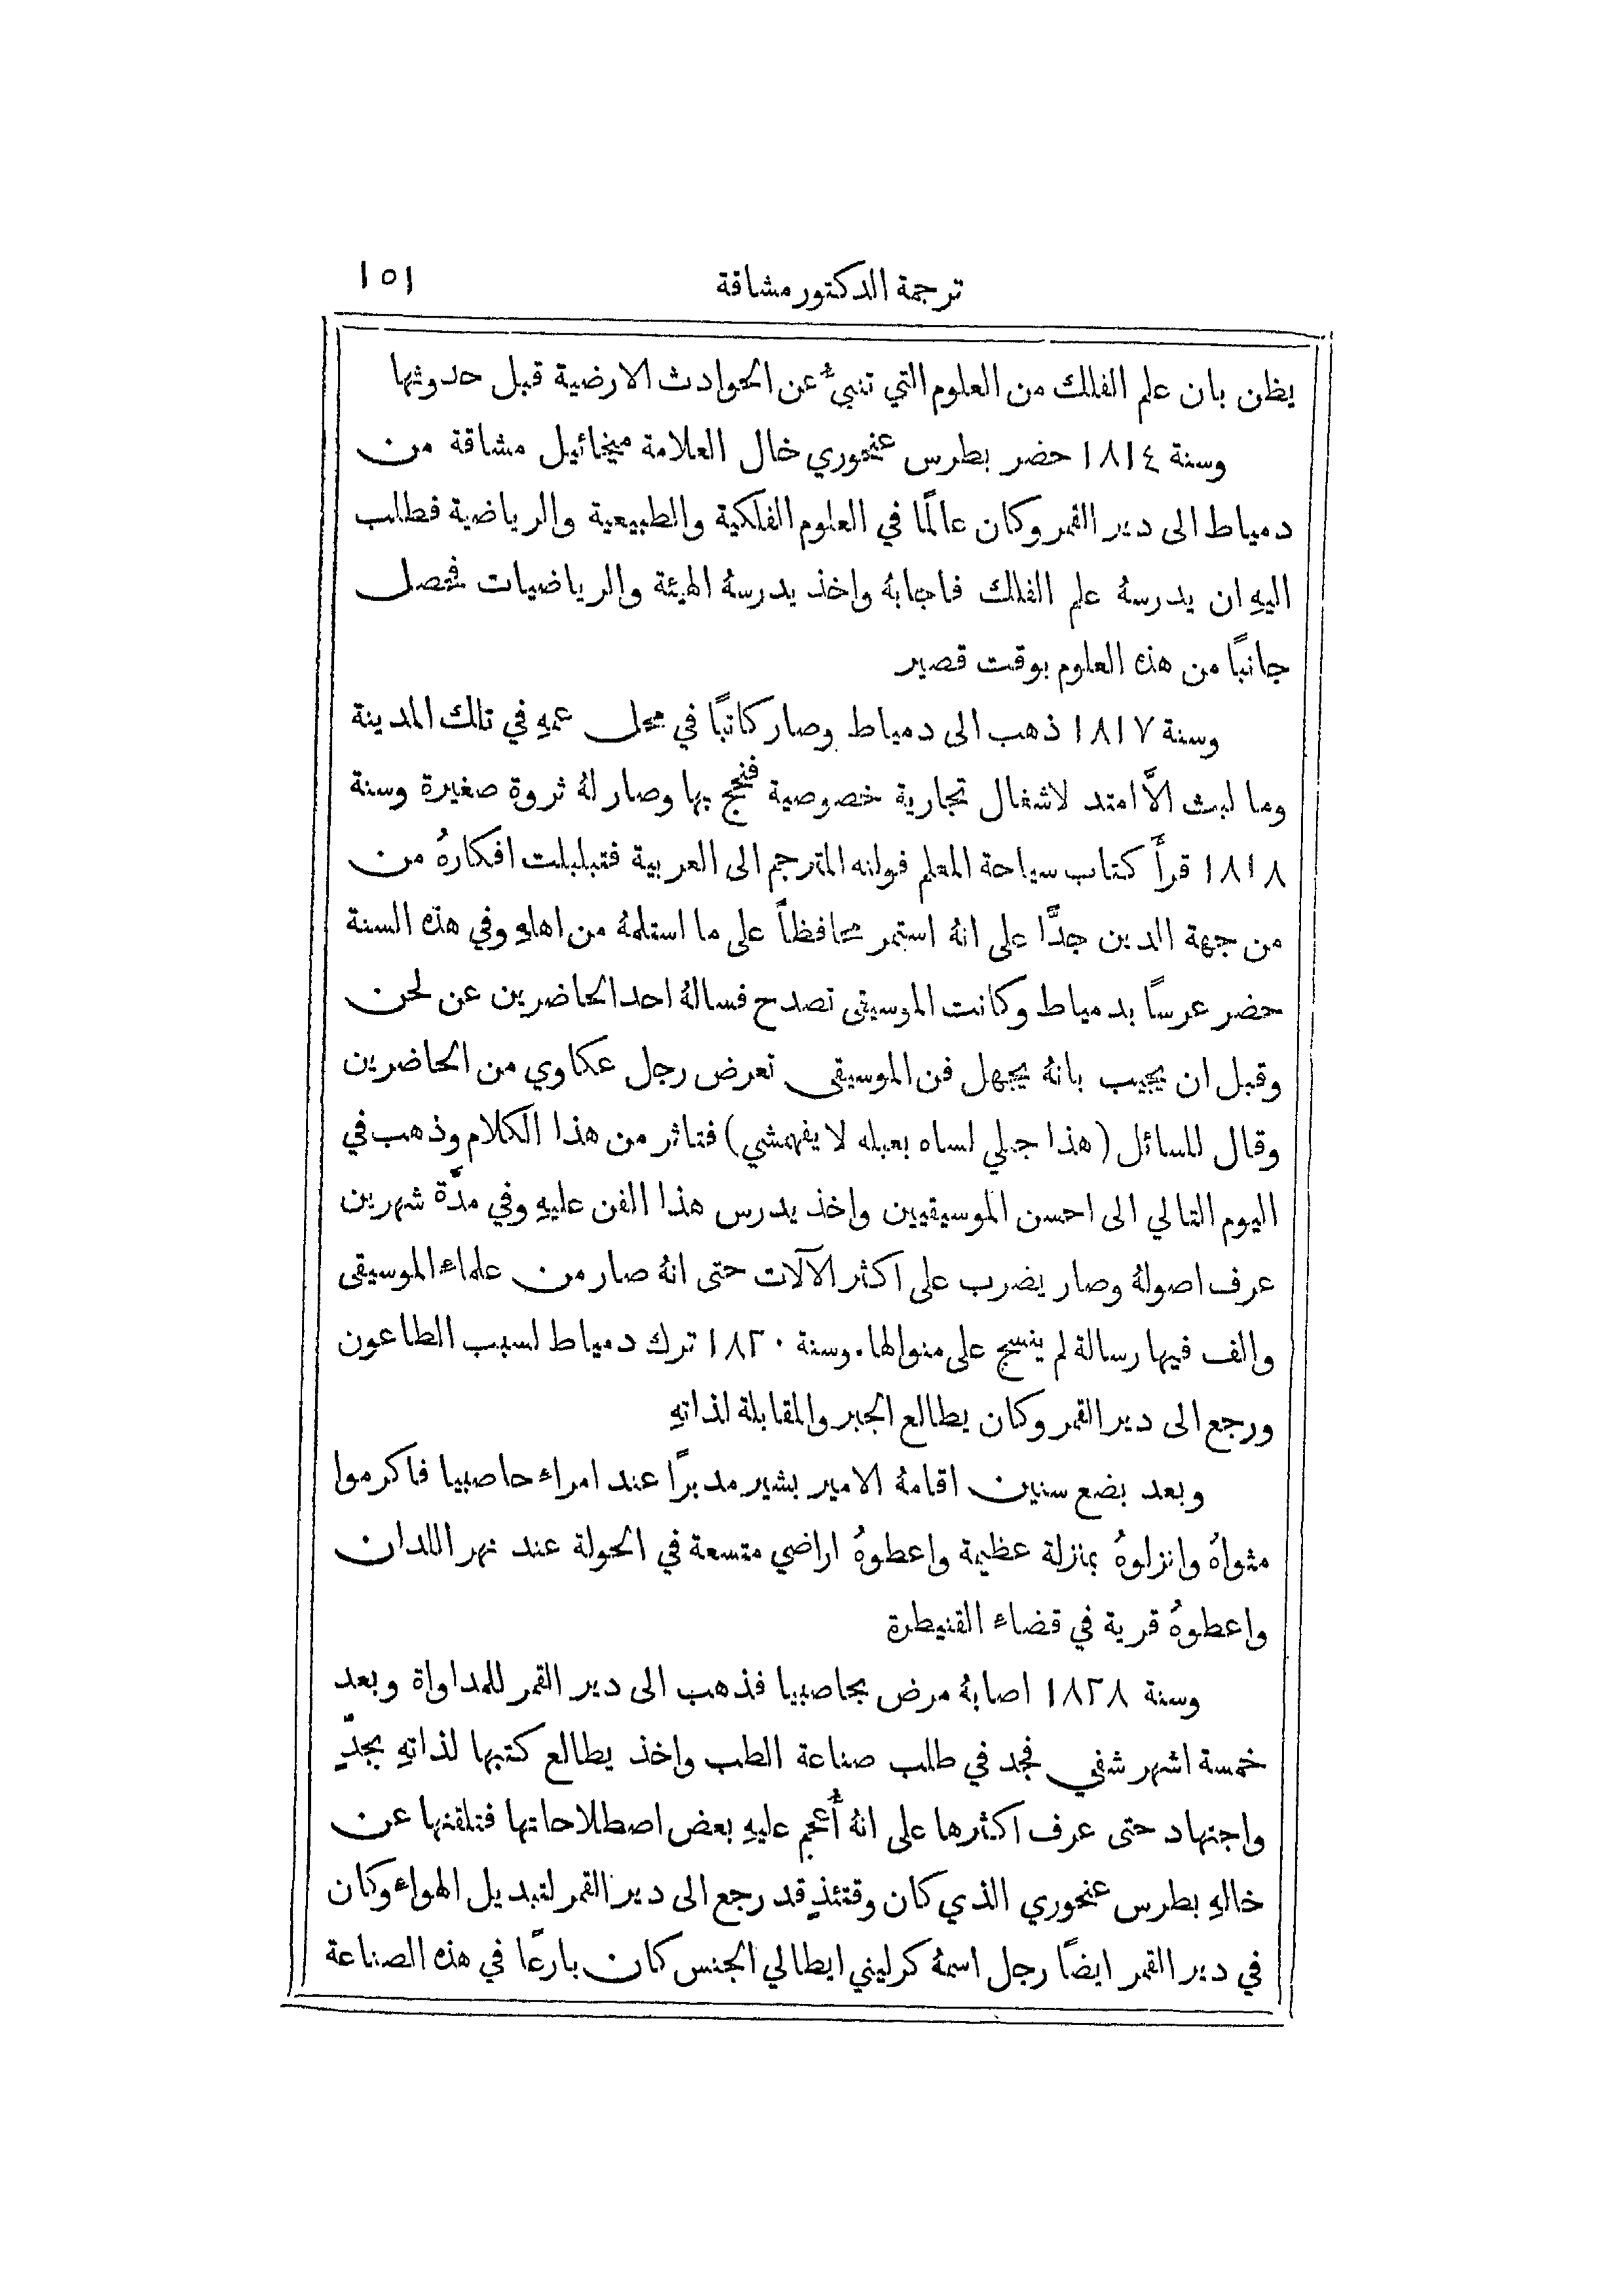 ترجمة الدكتور مشاقة ١٥١
يظن بان علم الفلك من العلوم التي تنبئُ عن الحوادث الارضية قبل حدوثها
وسنة ١٨١٤ حضر بطرس عنحوري خال العلامة ميخائيل مشاقة من
دمياط الى دير القمر وكان عالمًا في العلوم الفلكية والطبيعية والرياضية فطلب
اليهِ ان يدرسهُ علم الفلك فاجابهُ واخذ يدرسهُ الهيئة والرياضيات فحصل
جانبًا من هذه العلوم بوقت قصير
وسنة ١٨١٧ ذهب الى دمياط وصار كاتبًا في محل عمهِ في تلك المدينة
وما لبث الاَّ امتد لاشغال تجارية خصوصية فنجح بها وصار لهُ ثروة صغيرة وسنة
١٨١٨ قرأَ كتاب سياحة المعلم فولنه المترجم الى العربية فتبلبلت افكارهُ من
من جهة الدين جدًّا على انهُ استمر محافظاً على ما استلمهُ من اهلهِ وفي هذه السنة
حضر عرسًا بدمياط وكانت الموسيقى تصدح فسالهُ احد الحاضرين عن لحن
وقبل ان يجيب بانهُ يجهل فن الموسيقى تعرض رجل عكاوي من الحاضرين
وقال للسائل (هذا جبلي لساه بعبله لا يفهمشي) فتاثر من هذا الكلام وذهب في
اليوم التالي الى احسن الموسيقيين واخذ يدرس هذا الفن عليهِ وفي مدَّة شهرين
عرف اصولهُ وصار يضرب على اكثر الآلات حتى انهُ صار من علماء الموسيقى
والف فيها رسالة لم ينسج على منوالها. وسنة ١٨٢٠ ترك دمياط لسبب الطاعون
ورجع الى دير القمر وكان يطالع الجبر والمقابلة لذاتهِ
وبعد بضع سنين اقامهُ الامير بشير مدبرًا عند امراء حاصبيا فاكرموا
مثواهُ وانزلوهُ بمنزلة عظيمة واعطوهُ اراضي متسعة في الحولة عند نهر اللدان
واعطوهُ قرية في قضاء القنيطرة
وسنة ١٨٢٨ اصابهُ مرض بحاصبيا فذهب الى دير القمر للمداواة وبعد
خمسة اشهر شفي فجد في طلب صناعة الطب واخذ يطالع كتبها لذاتهِ بجدٍّ
واجتهاد حتى عرف اكثرها على انهُ أُعجم عليهِ بعض اصطلاحاتها فتلقنها عن
خالهِ بطرس عنحوري الذي كان وقتئذٍ قد رجع الى دير القمر لتبديل الهواء وكان
في دير القمر ايضًا رجل اسمهُ كرليني ايطالي الجنس كان بارعًا في هذه الصناعة